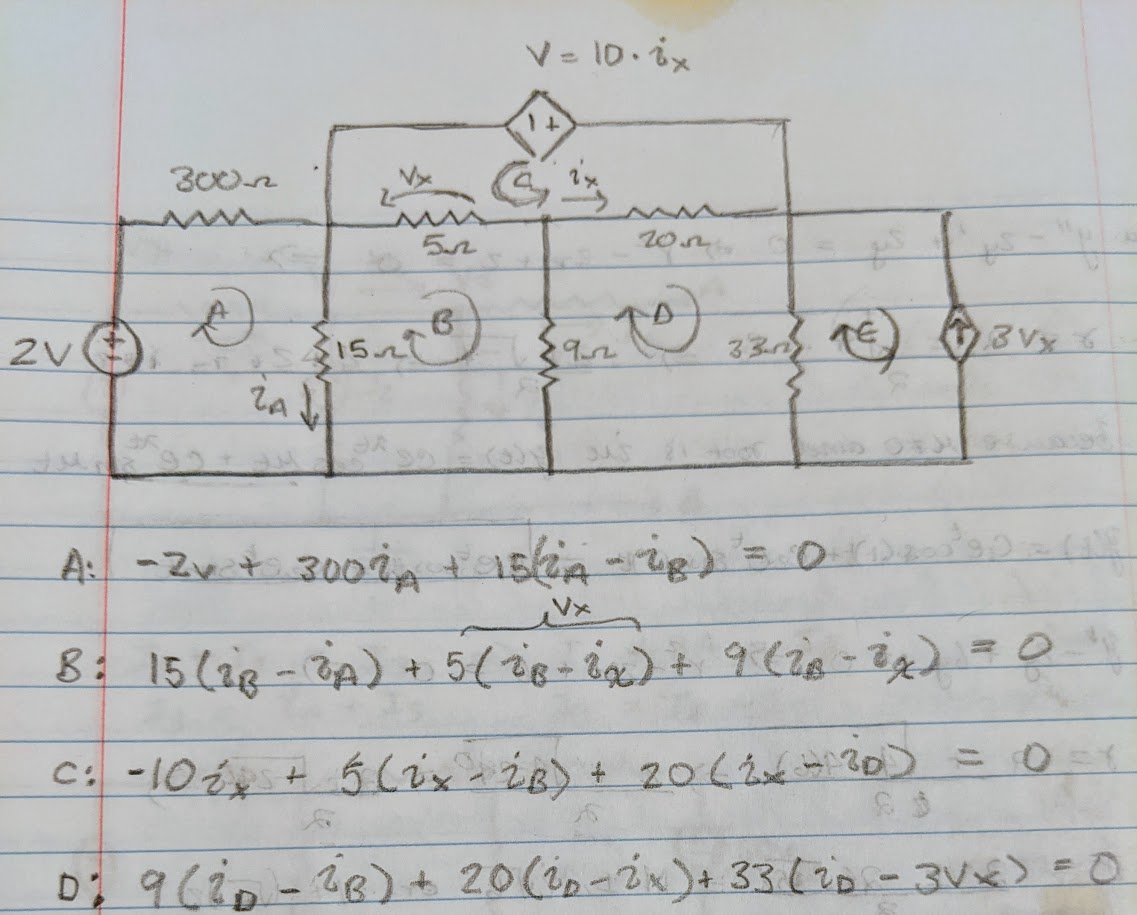 V = 10 · ix
- +
300Ω
Vx
C
ix
5Ω
20Ω
A
B
D
E
2V
+
-
15Ω
9Ω
33Ω
3Vx
iA
A: -2v + 300iA + 15(iA - iB) = 0
Vx
B: 15(iB - iA) + 5(iB - ix) + 9(iB - ix) = 0
C: -10ix + 5(ix - iB) + 20(ix - iD) = 0
D: 9(iD - iB) + 20(iD - ix) + 33(iD - 3Vx) = 0